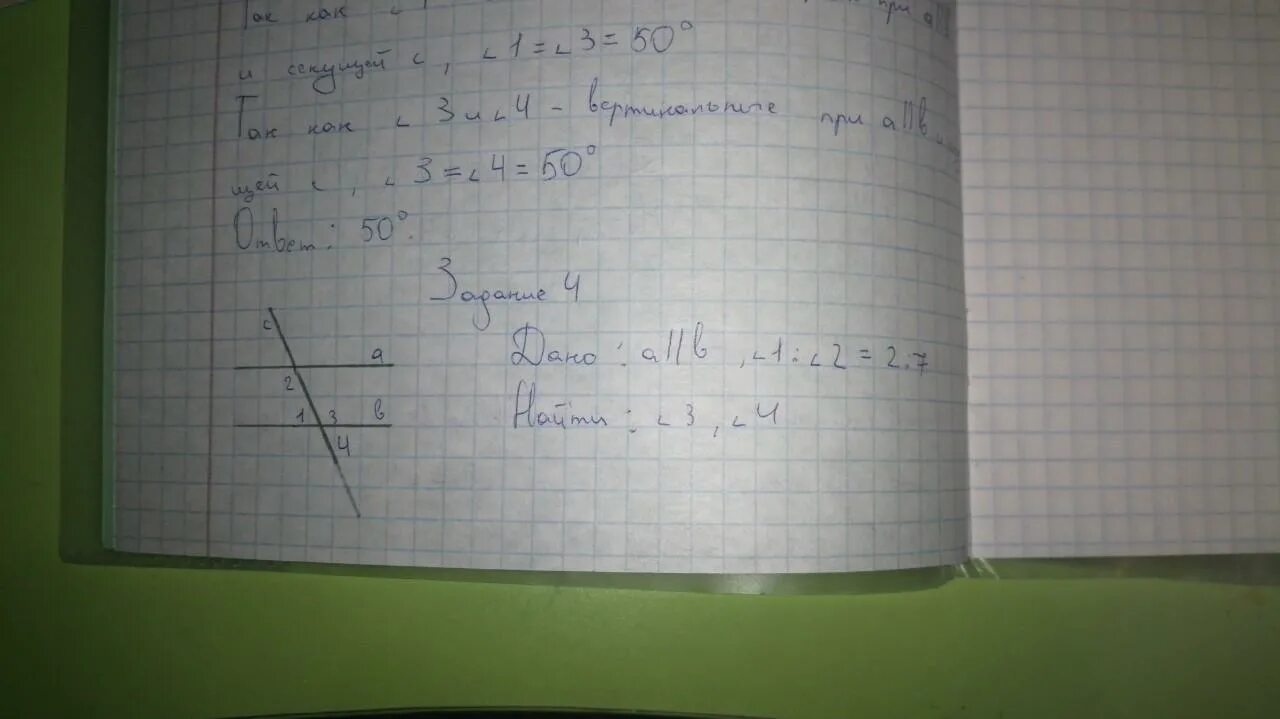 Так как ∠
при a
и секущей c, ∠1 = ∠3 = 50°
Так как ∠3 и ∠4 - вертикальные при a||b и
щей c, ∠3 = ∠4 = 50°
Ответ: 50°.
Задание 4
c
a
2
1 3 b
4
Дано: a||b, ∠1:∠2 = 2:7
Найти: ∠3, ∠4